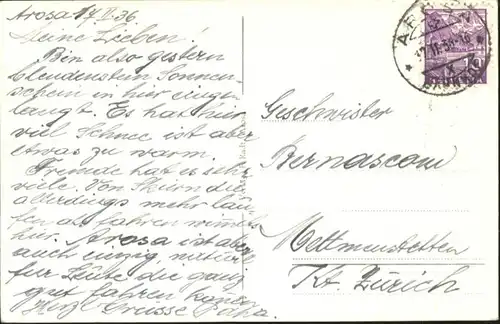 Arosa 17 II. 36
Meine Lieben!
Bin also gestern
blendensten Sonnen-
schein in hier ange
langt. Es hat hier
viel Schnee ist aber
etwas zu warm.
Fremde hat es sehr
viele. Von
allerdings mehr lau-
fen als fahren
hier. Arosa ist aber
auch einzig natürl.
für Leute die ganz
gut fahren können
Herz. Grüsse Papa.
10
Geschwister
Bernasconi
Mettmenstetten
Kt. Zürich